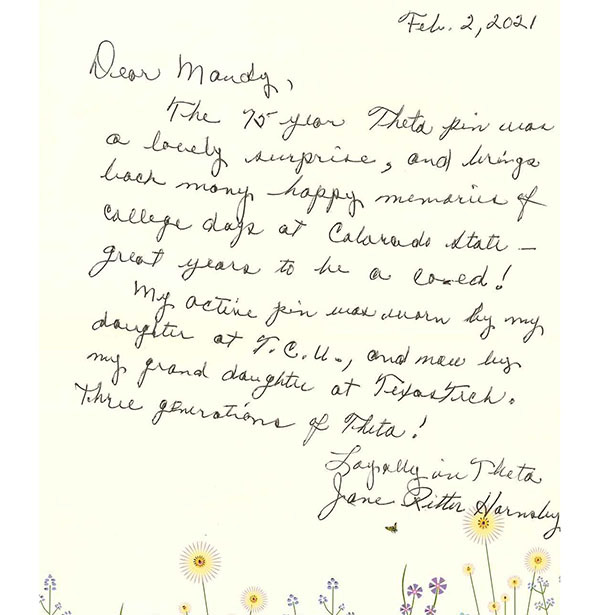 Feb. 2, 2021
Dear Mandy,
The 75 year Theta pin was
a lovely surprise, and brings
back many happy memories of
college days at Colorado State –
great years to be a co-ed!
My active pin was worn by my
daughter at T.C.U., and now by
my grand daughter at Texas Tech.
Three generations of Theta!
Loyally in Theta
Jane Ritter Hornsby